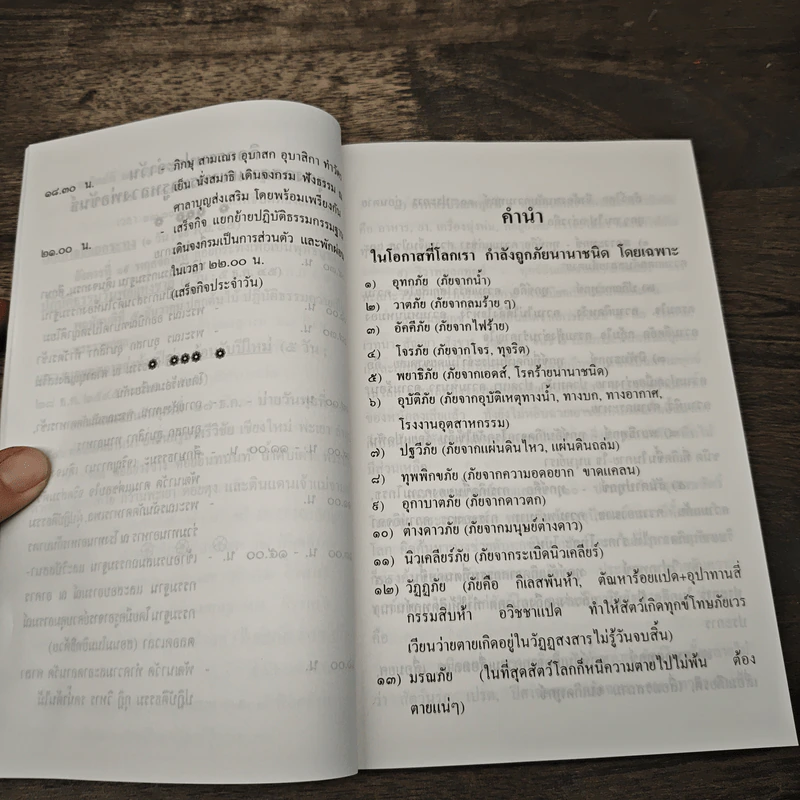 ๑๘.๓๐ น. - ภิกษุ สามเณร อุบาสก อุบาสิกา ทำวัตร
เย็น นั่งสมาธิ เดินจงกรม ฟังธรรม ณ
ศาลาบุญส่งเสริม โดยพร้อมเพรียงกัน
๒๑.๐๐ น. - เสร็จกิจ แยกย้ายปฏิบัติธรรมกรรมฐาน
เดินจงกรมเป็นการส่วนตัว และพักผ่อน
ในเวลา ๒๒.๐๐ น.
(เสร็จกิจประจำวัน)
คำนำ
ในโอกาสที่โลกเรา กำลังถูกภัยนานาชนิด โดยเฉพาะ
๑) อุทกภัย (ภัยจากน้ำ)
๒) วาตภัย (ภัยจากลมร้าย ๆ)
๓) อัคคีภัย (ภัยจากไฟร้าย)
๔) โจรภัย (ภัยจากโจร, ทุจริต)
๕) พยาธิภัย (ภัยจากเอดส์, โรคร้ายนานาชนิด)
๖) อุบัติภัย (ภัยจากอุบัติเหตุทางน้ำ, ทางบก, ทางอากาศ,
โรงงานอุตสาหกรรม)
๗) ปฐวีภัย (ภัยจากแผ่นดินไหว, แผ่นดินถล่ม)
๘) ทุพพิกขภัย (ภัยจากความอดอยาก ขาดแคลน)
๙) อุกาบาตภัย (ภัยจากดาวตก)
๑๐) ต่างดาวภัย (ภัยจากมนุษย์ต่างดาว)
๑๑) นิวเคลียร์ภัย (ภัยจากระเบิดนิวเคลียร์)
๑๒) วัฏฏภัย (ภัยคือ กิเลสพันห้า, ตัณหาร้อยแปด+อุปาทานสี่
กรรมสิบห้า อวิชชาแปด ทำให้สัตว์เกิดทุกข์โทษภัยเวร
เวียนว่ายตายเกิดอยู่ในวัฏฏสงสารไม่รู้วันจบสิ้น)
๑๓) มรณภัย (ในที่สุดสัตว์โลกก็หนีความตายไปไม่พ้น ต้อง
ตายแน่ๆ)